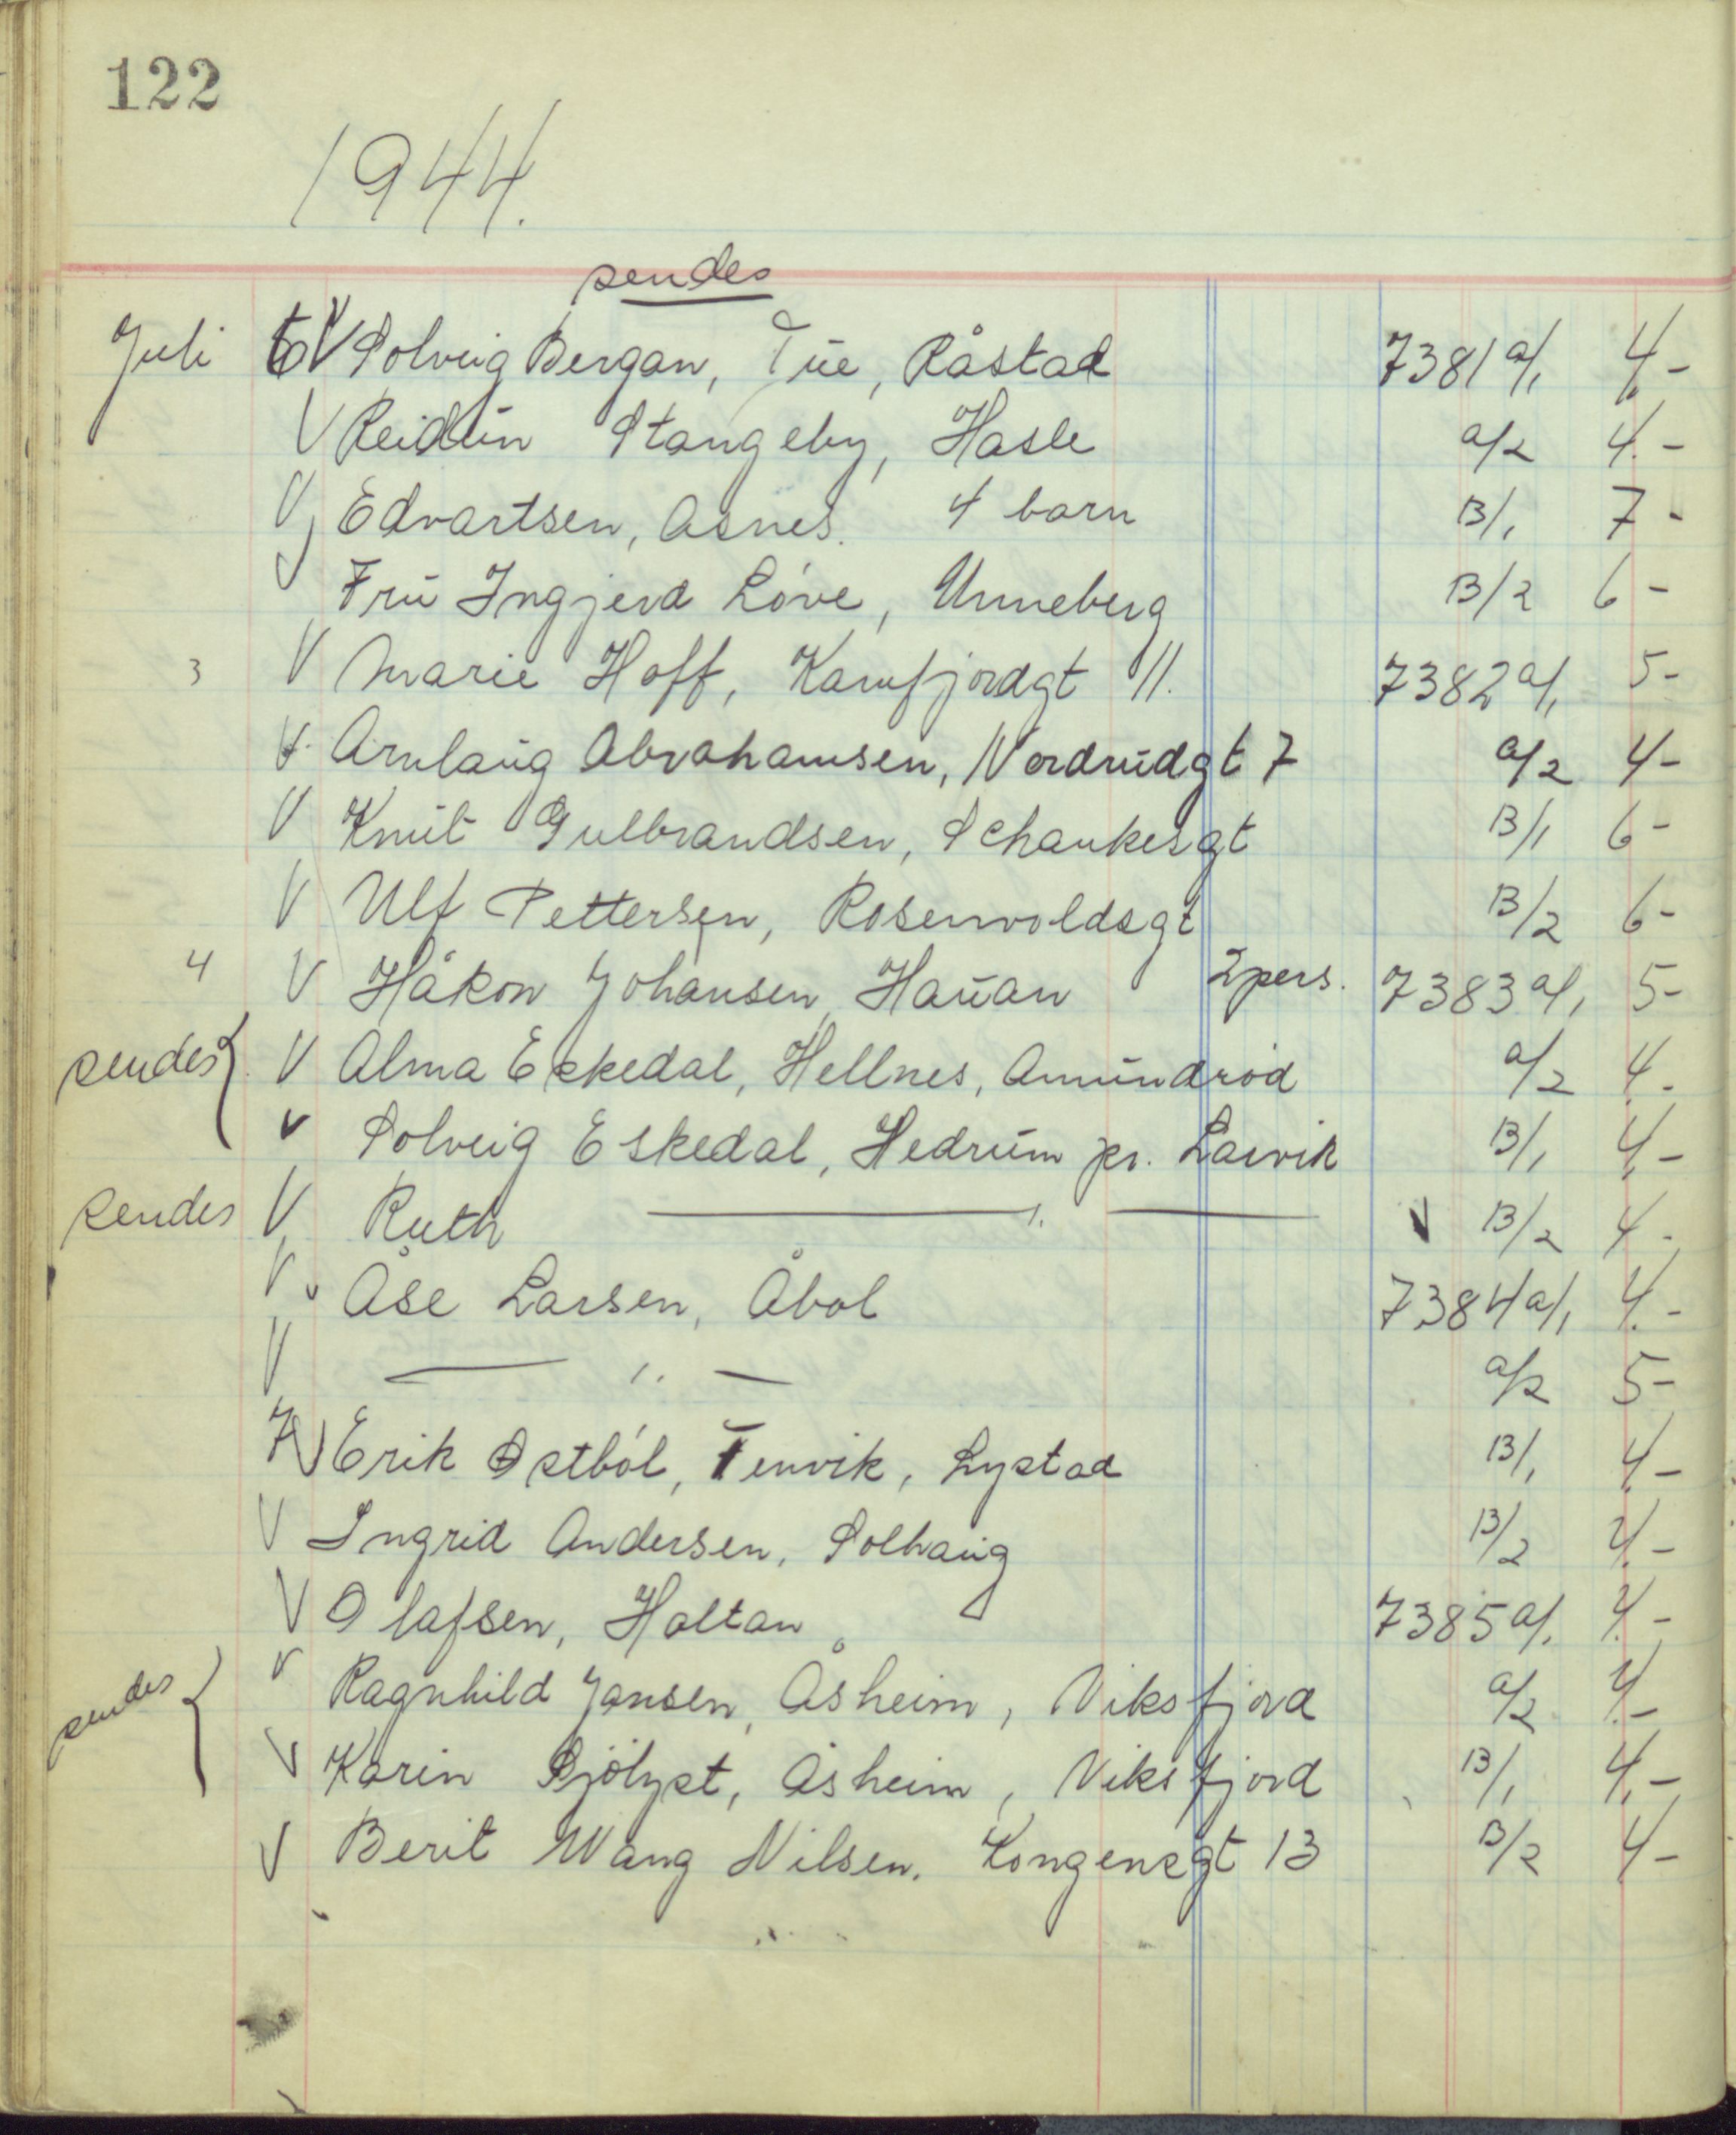 122
1944.
sendes
Juli V Solveig Bergan, Tue, Råstad 7381 a/1 4.-
V Reidun Stangeby, Hasle a/2 4.-
V Edvartsen, Asnes. 4 barn B/1 7-
V Fru Ingjerd Löve, Unneberg B/2 6-
3 V Marie Hoff, Kamfjordgt 11. 7382 a/1 5-
V Arnlaug Abrahamsen, Nordrudgt 7 a/2 4-
V Knut Gulbrandsen, Schankesgt B/1 6-
V Ulf Pettersen, Rosenvoldsgt B/2 6-
4 V Håkon Johansen, Hauan 2 pers. 7383 a/1 5-
sendes { V Alma Eskedal, Hellnes, Amundröd a/2 4.-
V Solveig Eskedal, Hedrum pr. Larvik B/1 4.-
sendes V Ruth —— " —— V B/2 4.-
V Åse Larsen, Åbol 7384 a/1 4.-
V —— " — a/2 5-
7 V Erik Ostböl, Tenvik, Lystad B/1 4.-
V Ingrid Andersen, Solhaug B/2 4.-
V Olafsen, Holtan 7385 a/1 4.-
sendes { V Ragnhild Jansen, Åsheim, Viksfjord a/2 4.-
V Karin Sjölyst, Åsheim, Viksfjord B/1 4.-
V Berit Wang Nilsen. Kongensgt 13 B/2 4-